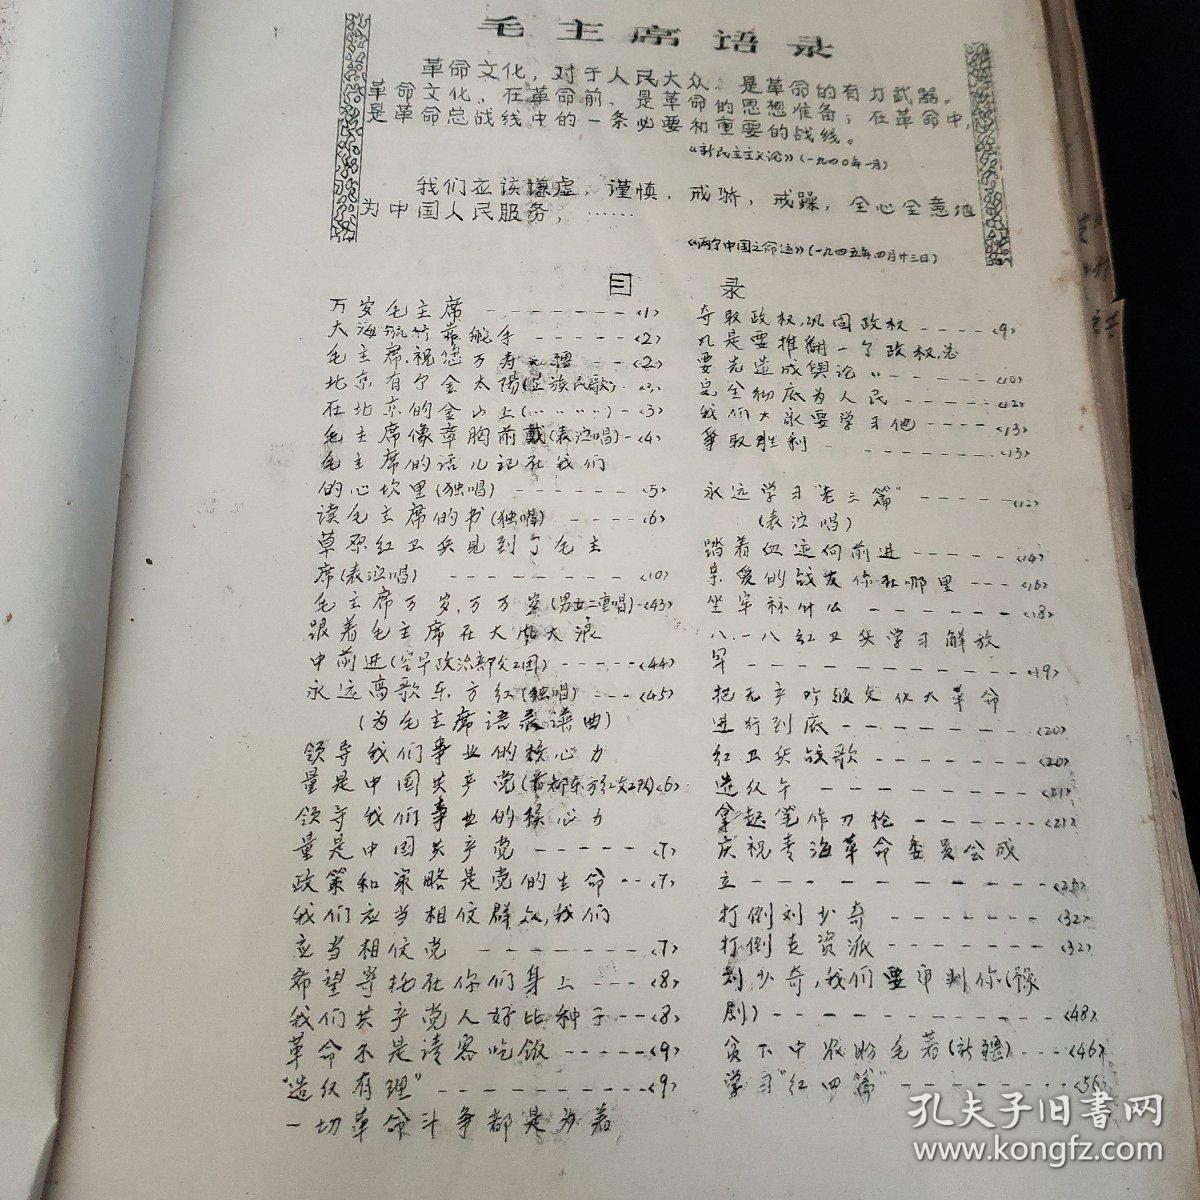 毛主席语录
革命文化，对于人民大众，是革命的有力武器。
革命文化，在革命前，是革命的思想准备；在革命中，
是革命总战线中的一条必要和重要的战线。
《新民主主义论》（一九四〇年一月）
我们应该谦虚，谨慎，戒骄，戒躁，全心全意地
为中国人民服务，……
《两个中国之命运》（一九四五年四月廿三日）
目录
万岁毛主席 ------- <1>
大海航行靠舵手 ---- <2>
毛主席，祝您万寿无疆 -- <2>
北京有个金太阳(藏族民歌)
在北京的金山上(…… 〃 〃)- <3>
毛主席像章胸前戴(表演唱)- <4>
毛主席的话儿记在我们
的心坎里(独唱) ------ <5>
读毛主席的书(独唱) ---- <6>
草原红卫兵见到了毛主
席(表演唱) -------- <10>
毛主席万岁，万万岁(男女二重唱)-<43>
跟着毛主席在大风大浪
中前进(空军政治部文工团)-----<44>
永远高歌东方红(独唱) --- <45>
(为毛主席语录谱曲)
领导我们事业的核心力
量是中国共产党(首都东方红文工队)<6>
领导我们事业的核心力
量是中国共产党 ----- <7>
政策和策略是党的生命 -- <7>
我们应当相信群众，我们
应当相信党 -------- <7>
希望寄托在你们身上 --- <8>
我们共产党人好比种子 -- <8>
革命不是请客吃饭 ----- <9>
"造反有理" --------- <9>
一切革命斗争都是为着
夺取政权，巩固政权 ---- <9>
凡是要推翻一个政权，总
要先造成舆论 〃 ----- <10>
完全彻底为人民 ------ <12>
我们大家要学习他 ---- <13>
争取胜利 -------- <13>
永远学习"老三篇" -----
(表演唱)
踏着血迹向前进 ----- <14>
亲爱的战友你在哪里 --- <16>
坐牢算什么 ------- <18>
八·一八红卫兵学习解放
军 ------------ <19>
把无产阶级文化大革命
进行到底 -------- <20>
红卫兵战歌 ------- <20>
造反午 --------- <21>
拿起笔作刀枪 ------ <21>
庆祝青海革命委员会成
立 ----------- <25>
打倒刘少奇 ------- <32>
打倒走资派 ------- <32>
刘少奇，我们要审判你(豫
剧)------------ <48>
贫下中农盼毛著(新疆)---<46>
学习"红四篇" ------- <56>
孔夫子旧书网
www.kongfz.com